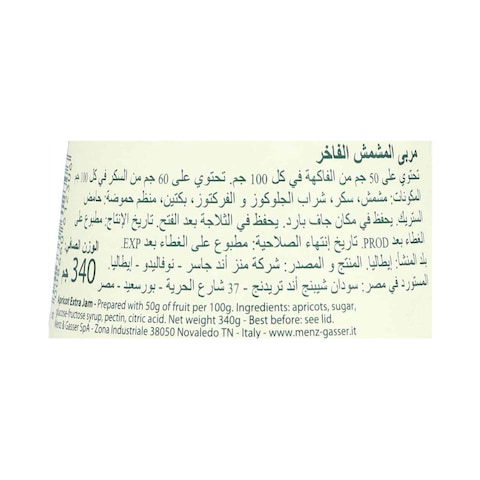 مربى المشمش الفاخر
تحتوي على 50 جم من الفاكهة في كل 100 جم. تحتوي على 60 جم من السكر في كل 100 جم
المكونات: مشمش، سكر، شراب الجلوكوز و الفركتوز، بكتين، منظم حموضة: حامض
الستريك. يحفظ في مكان جاف بارد. يحفظ في الثلاجة بعد الفتح. تاريخ الإنتاج: مطبوع على
الغطاء بعد PROD. تاريخ إنتهاء الصلاحية: مطبوع على الغطاء بعد EXP.
بلد المنشأ: إيطاليا. المنتج و المصدر: شركة منز أند جاسر - نوفاليدو - إيطاليا.
المستورد في مصر: سودان شيبنج أند تريدنج - 37 شارع الحرية - بورسعيد - مصر
الوزن الصافي:
340 جم
Apricot Extra Jam - Prepared with 50g of fruit per 100g. Ingredients: apricots, sugar,
glucose-fructose syrup, pectin, citric acid. Net weight 340g - Best before: see lid.
Menz & Gasser SpA - Zona Industriale 38050 Novaledo TN - Italy - www.menz-gasser.it